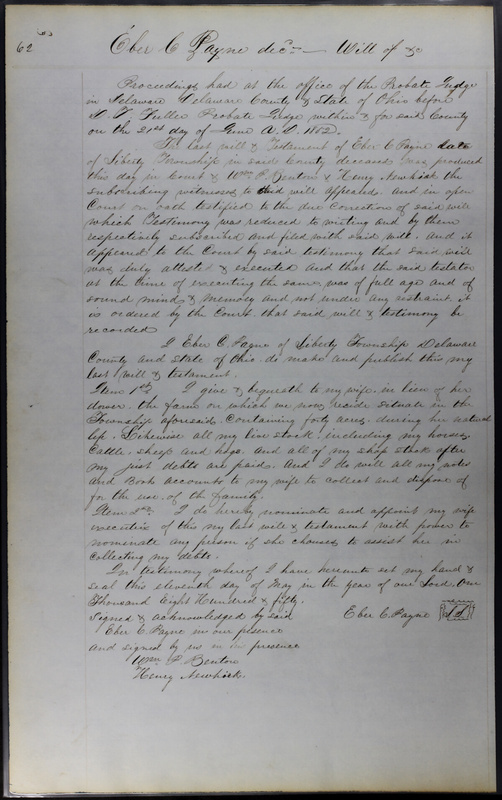 62
Eber C Payne decd — Will of &c
Proceedings had at the office of the Probate Judge
in Delaware Delaware County & State of Ohio before
T. Fuller Probate Judge within & for said County
on the 21st day of June A.D. 1852.
The last will & Testament of Eber C Payne late
of Liberty Township in said County deceased was produced
this day in Court & Wm P. Benton & Henry Newkirk the
subscribing witnesses to said will appeared. and in open
Court on oath testified to the due execution of said will
which Testimony was reduced to writing and by them
respectively subscribed and filed with said will. and it
appeared to the Court by said testimony that said will
was duly attest'd & executed and that the said testator
at the time of executing the same was of full age and of
sound mind & memory and not under any restraint. it
is ordered by the Court. that said will & testimony be
recorded
I Eber C. Payne of Liberty Township Delaware
County and State of Ohio. do make and publish this my
last will & testament.
Item 1st I give & bequeath to my wife in lieu of her
dower. the farm on which we now reside situate in the
Township aforesaid. Containing forty acres. during her natural
life. Likewise all my live stock. including my horses.
Cattle. sheep and hogs. And all of my shop stock after
my just debts are paid. And I do will all my notes
and Book accounts to my wife to collect and dispose of
for the use of the family.
Item 2nd I do hereby nominate and appoint my wife
executrix of this my last will & testament with power to
nominate any person if she chooses to assist her in
collecting my debts.
In testimony whereof I have hereunto set my hand &
seal this eleventh day of May in the year of our Lord. One
Thousand Eight Hundred & fifty.
Signed & acknowledged by said Eber C. Payne LS
Eber C. Payne in our presence
and signed by us in presence
Wm P Benton
Henry Newkirk.